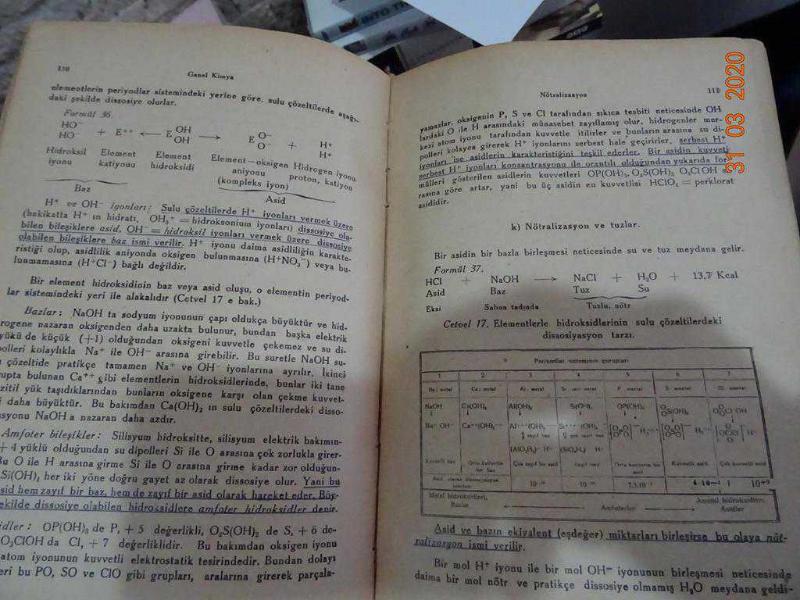 110
Genel Kimya
elementlerin periyodlar sistemindeki yerine göre, sulu çözeltilerde aşağı-
daki şekilde dissosiye olurlar.
Formül 36.
HO⁻ + E⁺⁺ ⟵ E OH ⟶ E O⁻ + H⁺
HO⁻ OH O⁻ H⁺
Hidroksil Element Element Element—oksigen Hidrogen iyonu
iyonu katiyonu hidroksidi aniyonu proton, katiyon
(kompleks iyon)
Baz Asid
H⁺ ve OH⁻ iyonları: Sulu çözeltilerde H⁺ iyonları vermek üzere
(hakikatta H⁺ ın hidratı, OH₃⁺ = hidroksonium iyonları) dissosiye ola-
bilen bileşiklere asid, OH⁻ = hidroksil iyonları vermek üzere dissosiye
olabilen bileşiklere baz ismi verilir. H⁺ iyonu daima asidliliğin karakte-
ristiği olup, asidlilik aniyonda oksigen bulunmasına (H⁺NO₃⁻) veya bu-
lunmamasına (H⁺Cl⁻) bağlı değildir.
Bir element hidroksidinin baz veya asid oluşu, o elementin periyod-
lar sistemindeki yeri ile alakalıdır (Cetvel 17 e bak.)
Bazlar: NaOH ta sodyum iyonunun çapı oldukça büyüktür ve hid-
rogene nazaran oksigenden daha uzakta bulunur, bundan başka elektrik
yükü de küçük (+1) olduğundan oksigeni kuvvetle çekemez ve su di-
polleri kolaylıkla Na⁺ ile OH⁻ arasına girebilir. Bu suretle NaOH su-
çözeltide pratikçe tamamen Na⁺ ve OH⁻ iyonlarına ayrılır. İkinci
rupta bulunan Ca⁺⁺ gibi elementlerin hidroksidlerinde, bunlar iki tane
zitif yük taşıdıklarından bunların oksigene karşı olan çekme kuvvet-
i daha büyüktür. Bu bakımdan Ca(OH)₂ ın sulu çözeltilerdeki disso-
syonu NaOH a nazaran daha azdır.
Amfoter bileşikler: Silisyum hidroksitte, silisyum elektrik bakımın-
+4 yüklü olduğundan su dipolleri Si ile O arasına çok zorlukla girer-
Bu O ile H arasına girme Si ile O arasına girme kadar zor olduğun-
Si(OH)₄ her iki yöne doğru gayet az olarak dissosiye olur. Yani bu
sid hem zayıf bir baz, hem de zayıf bir asid olarak hareket eder. Böy-
ekilde dissosiye olabilen hidroksidlere amfoter hidroksidler denir.
idler: OP(OH)₃ de P, +5 değerlikli, O₂S(OH)₂ de S, +6 de-
O₃ClOH da Cl, +7 değerliklidir. Bu bakımdan oksigen iyonu
atom iyonunun kuvvetli elektrostatik tesirindedir. Bundan dolayı
eri bu PO, SO ve ClO gibi grupları, aralarına girerek parçala-
Nötralizasyon
111
yamazlar, oksigenin P, S ve Cl tarafından sıkıca tesbiti neticesinde OH
lardaki O ile H arasındaki münasebet zayıflamış olur, hidrogenler mer-
kezi atom iyonu tarafından kuvvetle itilirler ve bunların arasına su di-
polleri kolayca girerek H⁺ iyonlarını serbest hale geçirirler, serbest H⁺
iyonları ise asidlerin karakteristiğini teşkil ederler. Bir asidin kuvveti
serbest H⁺ iyonları konsantrasyonu ile orantılı olduğundan yukarıda for-
mülleri gösterilen asidlerin kuvvetleri OP(OH)₃, O₂S(OH)₂, O₃ClOH
rasına göre artar, yani bu üç asidin en kuvvetlisi HClO₄ = perklorat
asididir.
k) Nötralizasyon ve tuzlar.
Bir asidin bir bazla birleşmesi neticesinde su ve tuz meydana gelir.
Formül 37.
HCl + NaOH ⟶ NaCl + H₂O + 13,7 Kcal
Asid Baz Tuz Su
Ekşi Sabun tadında Tuzlu, nötr
Cetvel 17. Elementlerle hidroksidlerinin sulu çözeltilerdeki
dissosiyasyon tarzı.
Periyodlar sisteminin grupları
1 2 3 4 5 6 7
NaOH Ca(OH)₂ Al(OH)₃ Si(OH)₄ OP(OH)₃ O₂S(OH)₂ O₃Cl OH
Na⁺ OH⁻ Ca⁺⁺(OH)₂⁻⁻
Kuvvetli baz Çok zayıf baz Kuvvetli asid Çok kuvvetli asid
Metal hidroksidleri, Ametal hidroksidleri,
Bazlar Amfoterler Asidler
Asid ve bazın ekivalent (eşdeğer) miktarları birleşirse bu olaya nöt-
ralizasyon ismi verilir.
Bir mol H⁺ iyonu ile bir mol OH⁻ iyonunun birleşmesi neticesinde
daima bir mol nötr ve pratikçe dissosiye olmamış H₂O meydana geldi-
31 03 2020